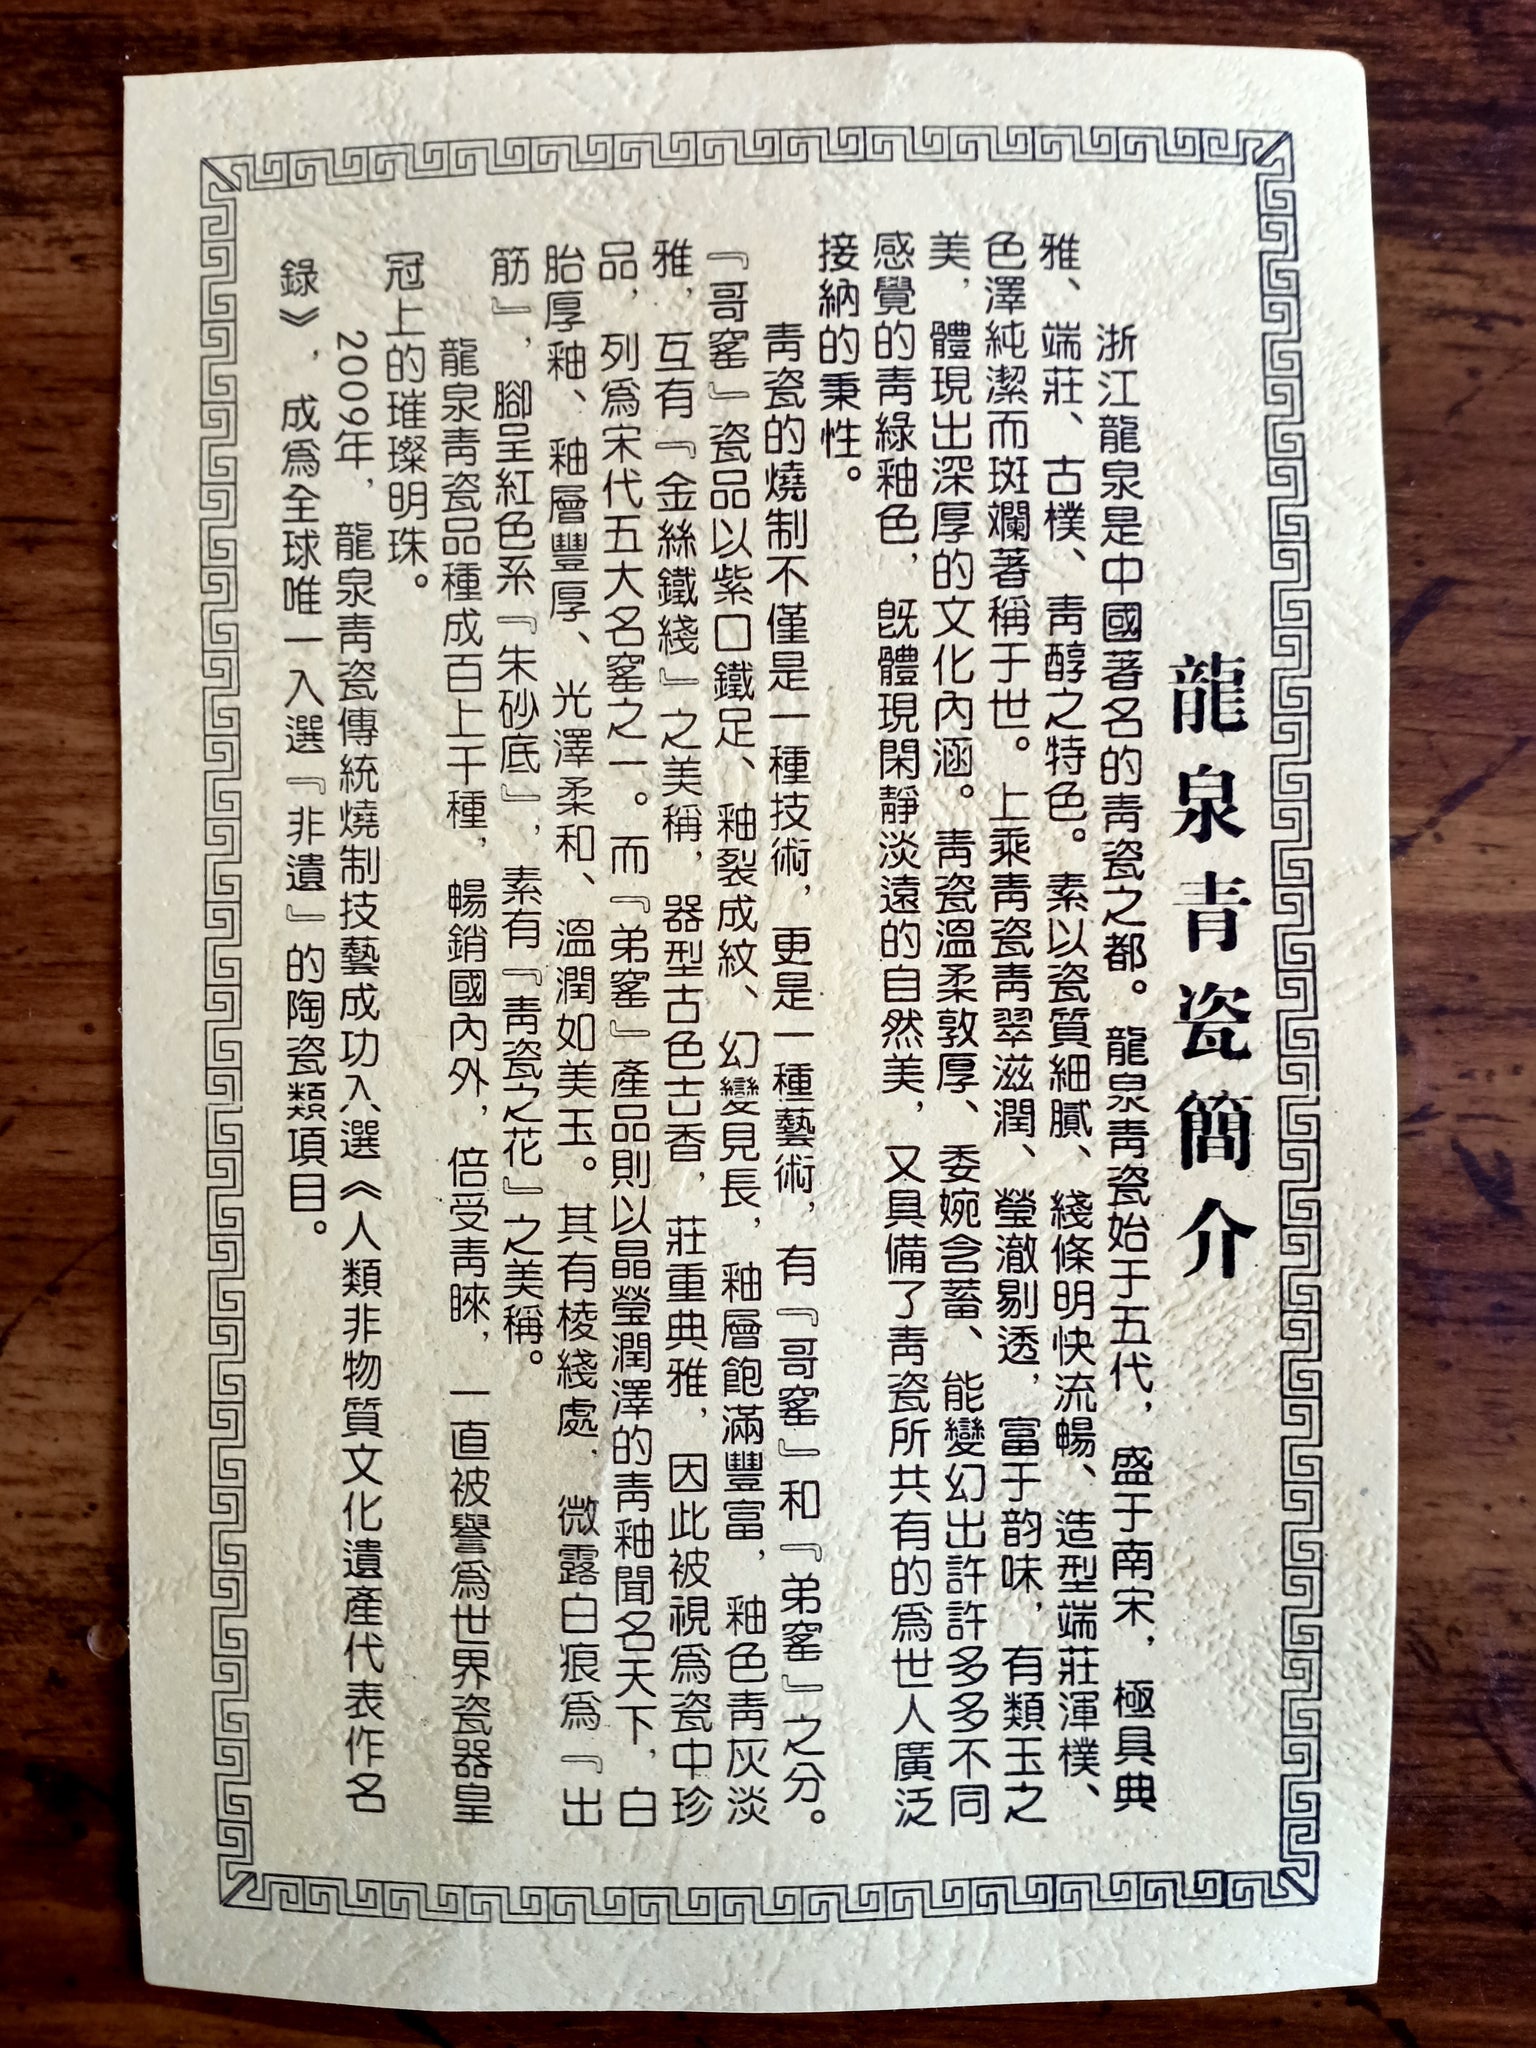 龍泉青瓷簡介
浙江龍泉是中國著名的青瓷之都。龍泉青瓷始于五代，盛于南宋，極具典
雅、端莊、古樸、青醇之特色。素以瓷質細膩、綫條明快流暢、造型端莊渾樸、
色澤純潔而斑斕著稱于世。上乘青瓷青翠滋潤、瑩澈剔透，富于韵味，有類玉之
美，體現出深厚的文化内涵。青瓷溫柔敦厚、委婉含蓄、能變幻出許許多多不同
感覺的青綠釉色，既體現閑靜淡遠的自然美，又具備了青瓷所共有的爲世人廣泛
接納的秉性。
青瓷的燒制不僅是一種技術，更是一種藝術，有『哥窰』和『弟窰』之分。
『哥窰』瓷品以紫口鐵足、釉裂成紋、幻變見長，釉層飽滿豐富，釉色青灰淡
雅，互有『金絲鐵綫』之美稱，器型古色古香，莊重典雅，因此被視爲瓷中珍
品，列爲宋代五大名窰之一。而『弟窰』產品則以晶瑩潤澤的青釉聞名天下，白
胎厚釉、釉層豐厚、光澤柔和、溫潤如美玉。其有棱綫處，微露白痕爲『出
筋』，腳呈紅色系『朱砂底』，素有『青瓷之花』之美稱。
龍泉青瓷品種成百上千種，暢銷國内外，倍受青睞，一直被譽爲世界瓷器皇
冠上的璀璨明珠。
2009年，龍泉青瓷傳統燒制技藝成功入選《人類非物質文化遺產代表作名
錄》，成爲全球唯一入選『非遺』的陶瓷類項目。